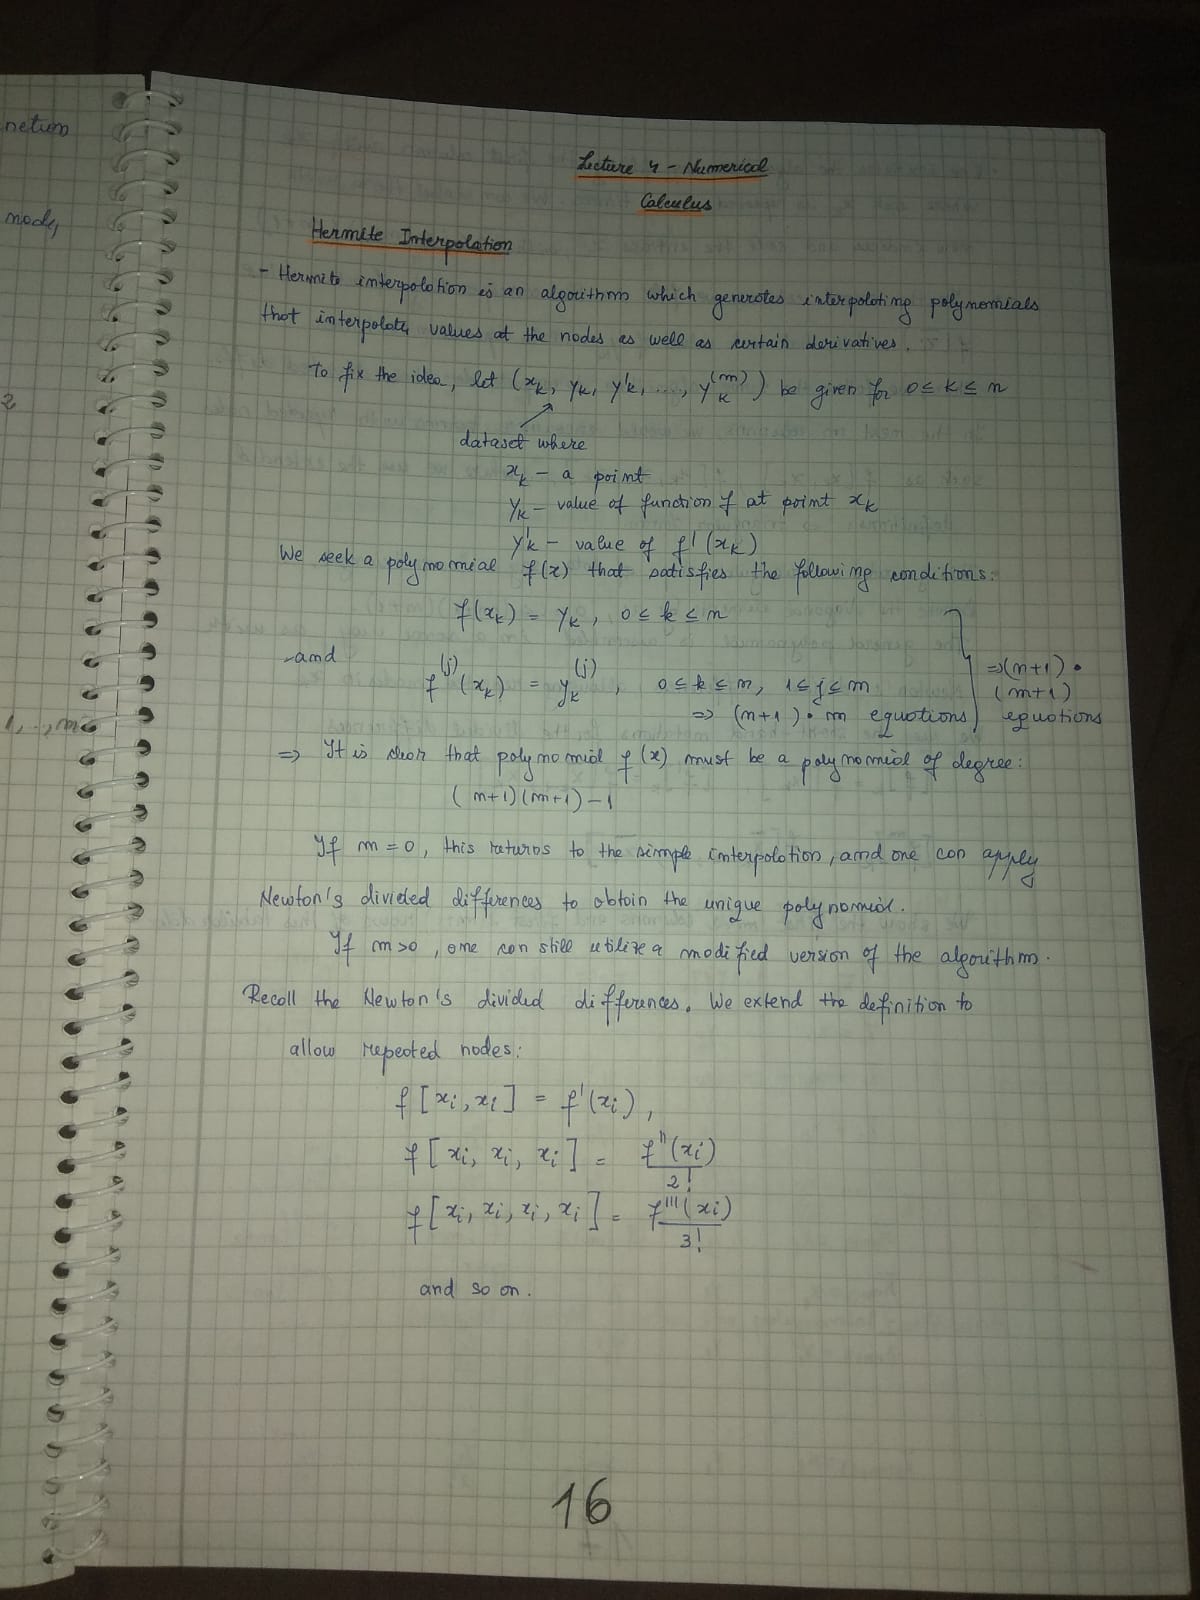 netion
node,
2
1,..,m
Lecture 4 - Numerical
Calculus
Hermite Interpolation
- Hermite interpolation is an algorithm which generates interpolating polynomials
that interpolate values at the nodes as well as certain derivatives.
To fix the idea, let (x_k, y_k, y'_k, ..., y_k^(m)) be given for 0 ≤ k ≤ n
dataset where
x_k - a point
y_k - value of function f at point x_k
y'_k - value of f'(x_k)
We seek a polynomial f(x) that satisfies the following conditions:
f(x_k) = y_k, 0 ≤ k ≤ n
and
f^(j)(x_k) = y_k^(j), 0 ≤ k ≤ n, 1 ≤ j ≤ m
⇒ (n+1)•m equations
⇒ (n+1)•
(m+1)
equations
⇒ It is clear that polynomial f(x) must be a polynomial of degree:
(n+1)(m+1)-1
If m = 0, this returns to the simple interpolation, and one can apply
Newton's divided differences to obtain the unique polynomial.
If m>0, one can still utilize a modified version of the algorithm.
Recall the Newton's divided differences. We extend the definition to
allow repeated nodes:
f[x_i, x_i] = f'(x_i),
f[x_i, x_i, x_i] = f''(x_i)/2!
f[x_i, x_i, x_i, x_i] = f'''(x_i)/3!
and so on.
16